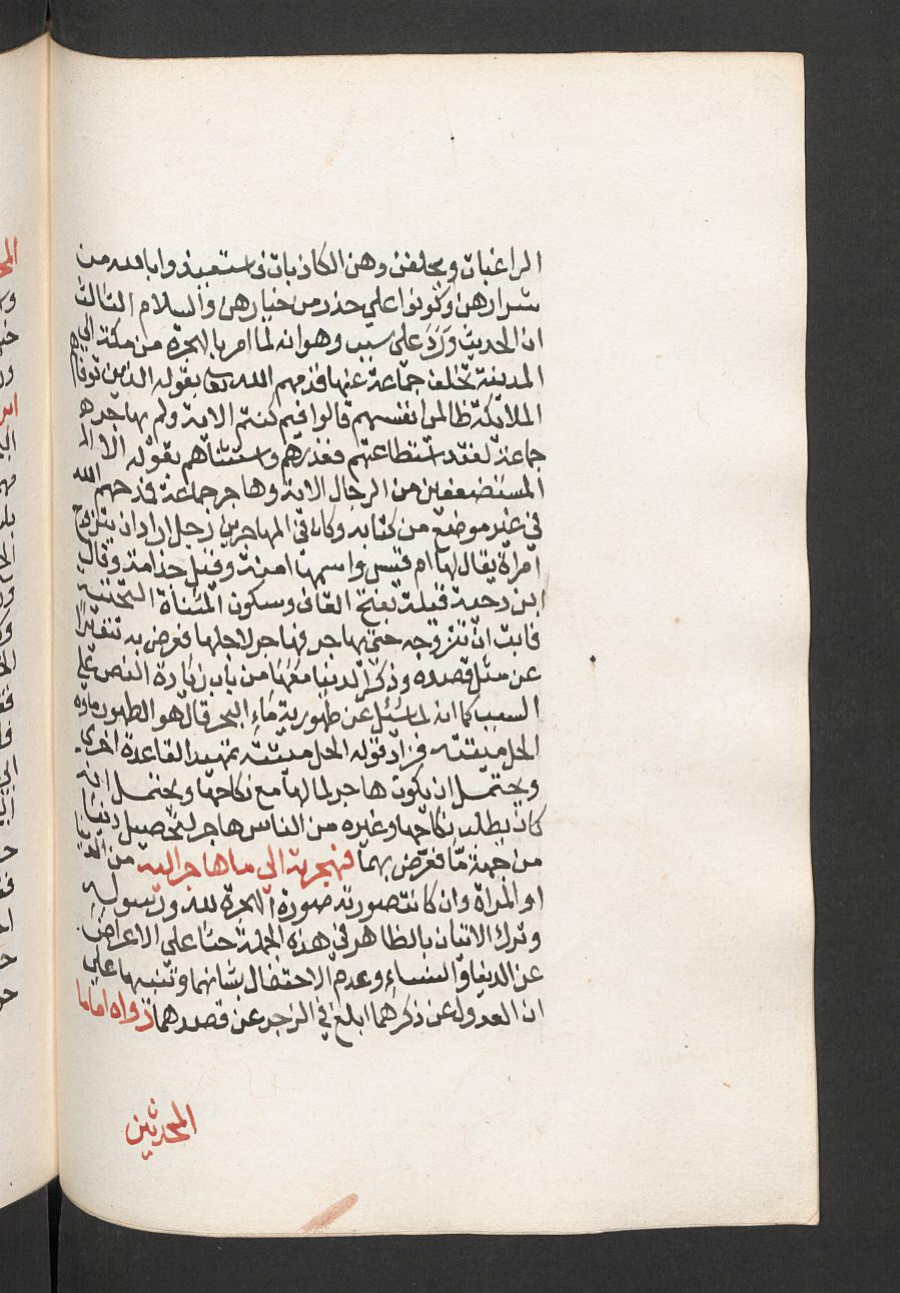 الراغبات ويحلفن وهن الكاذبات فاستعيذوا بالله من
شرارهن وكونوا علي حذر من خيارهن والسلام الثالث
ان الحديث ورد علي سبب وهو انه لما امر بالهجرة من مكة الي
المدينة تخلف جماعة عنها فذمهم الله تعا بقوله الذين توفاهم
الملائكة ظالمي انفسهم قالوا فيم كنتم الاية ولم يهاجر
جماعة لفقد استطاعتهم فعذرهم واستثناهم بقوله الا
المستضعفين من الرجال الاية وهاجر جماعة فمدحهم الله
في غير موضع من كتابه وكان في المهاجرين رجل اراد ان يتزوج
امراة يقال لها ام قيس واسمها امية وقيل جذامة وقال
ابن دحية قيلة بفتح القاف وسكون المثناة التحتية
فابت ان تتزوجه حتي يهاجر فهاجر لاجلها فعرض به تنفيرا
عن مثل قصده وذكر الدنيا معها من باب زيادة النص علي
السبب كما انه لما سئل عن طهورية ماء البحر قال هو الطهور ماؤه
الحل ميتته فزاد قوله الحل ميتته تمهيدا لقاعدة اخري
ويحتمل ان يكون هاجر لمالها مع نكاحها ويحتمل انه
كان يطلب نكاحها وغيره من الناس هاجر لتحصيل دنيا
من جهة ما فعرض بهما فهجرته الي ما هاجر اليه من الدنيا
او المراة وان كانت صورته صورة الهجرة لله ورسوله
وترك الاتيان بالظاهر في هذه الجملة حثا علي الاعراض
عن الدنيا والنساء وعدم الاحتفال بشانهما وتنبيها علي
ان العدول عن ذكرهما ابلغ في الزجر عن قصدهما رواه اماما
المحدثين